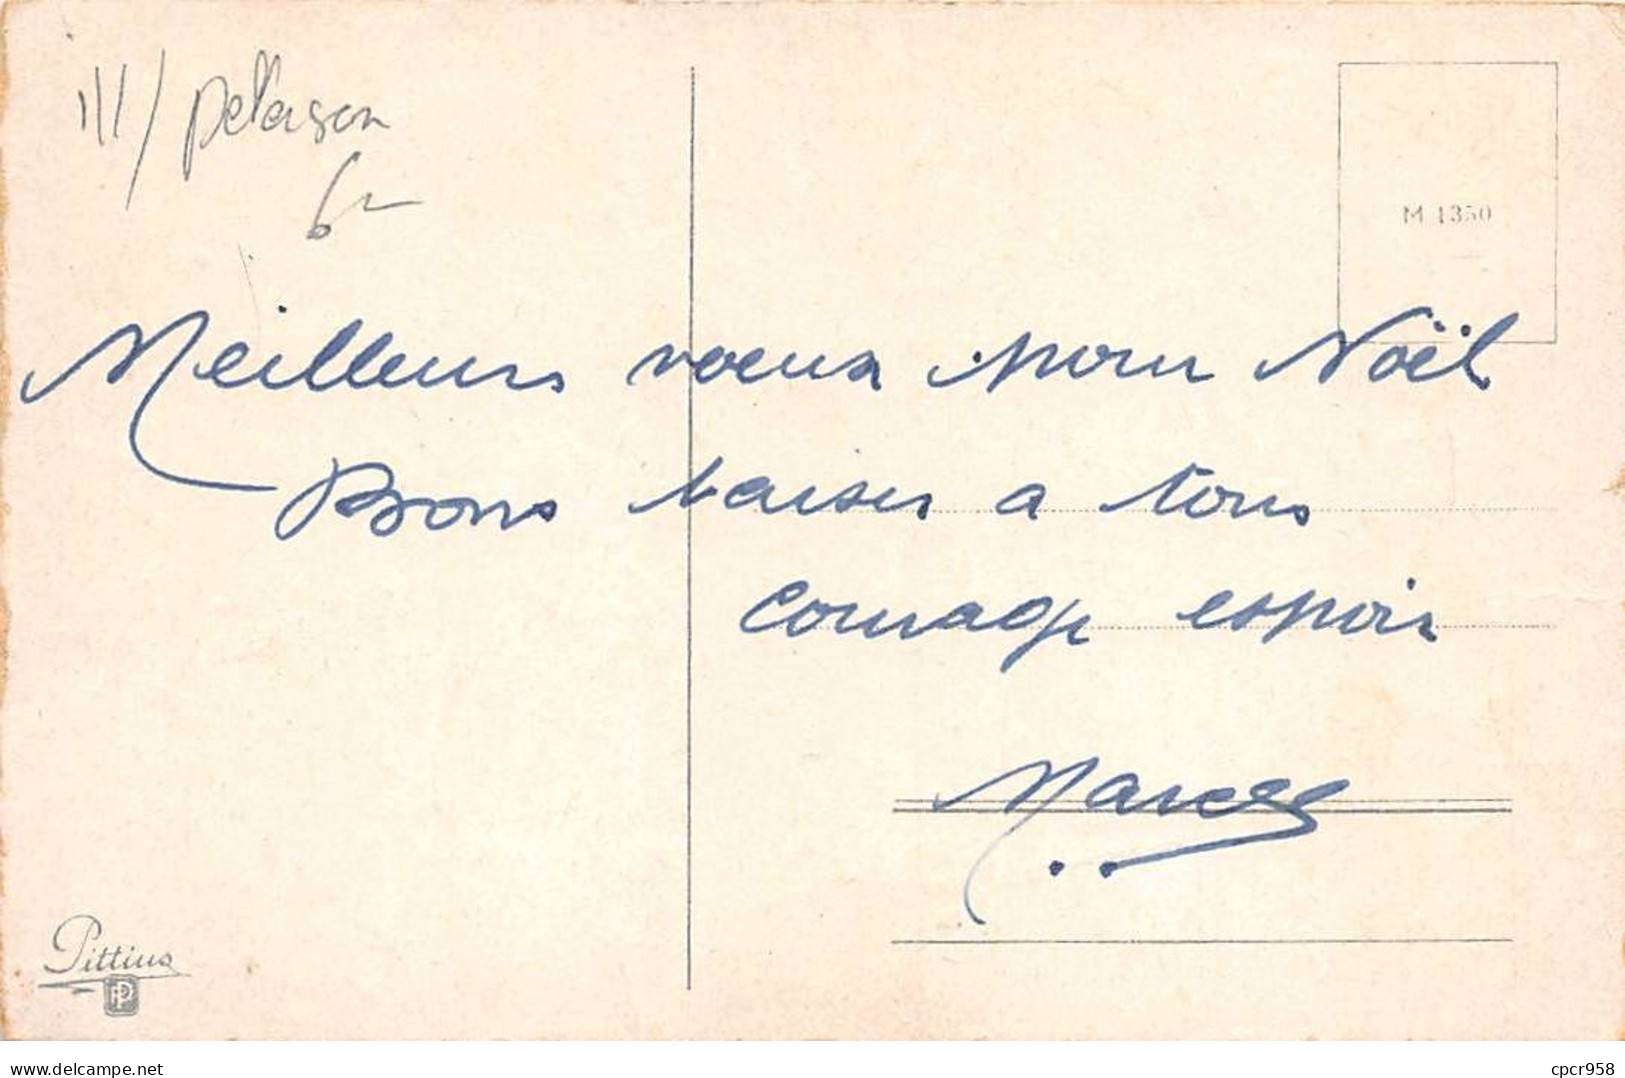 III/ petersen
6
M 1350
Meilleurs voeux pour Noël
Bons baisers a tous
courage espoir
Marcel
Pittius
PP
delcampe.net
cpcr958